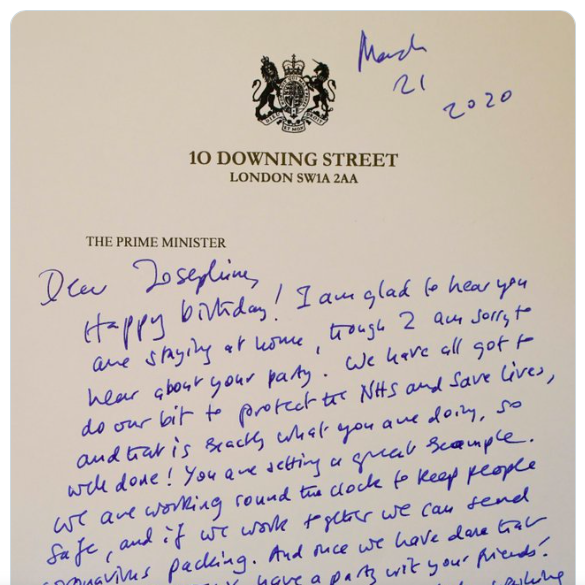 March
21
2020
10 DOWNING STREET
LONDON SW1A 2AA
THE PRIME MINISTER
Dear Josephine,
Happy birthday! I am glad to hear you
are staying at home, though I am sorry to
hear about your party. We have all got to
do our bit to protect the NHS and save lives,
and that is exactly what you are doing, so
well done! You are setting a great example.
We are working round the clock to keep people
safe, and if we work together we can send
coronavirus packing. And once we have done that
have a party with your friends!